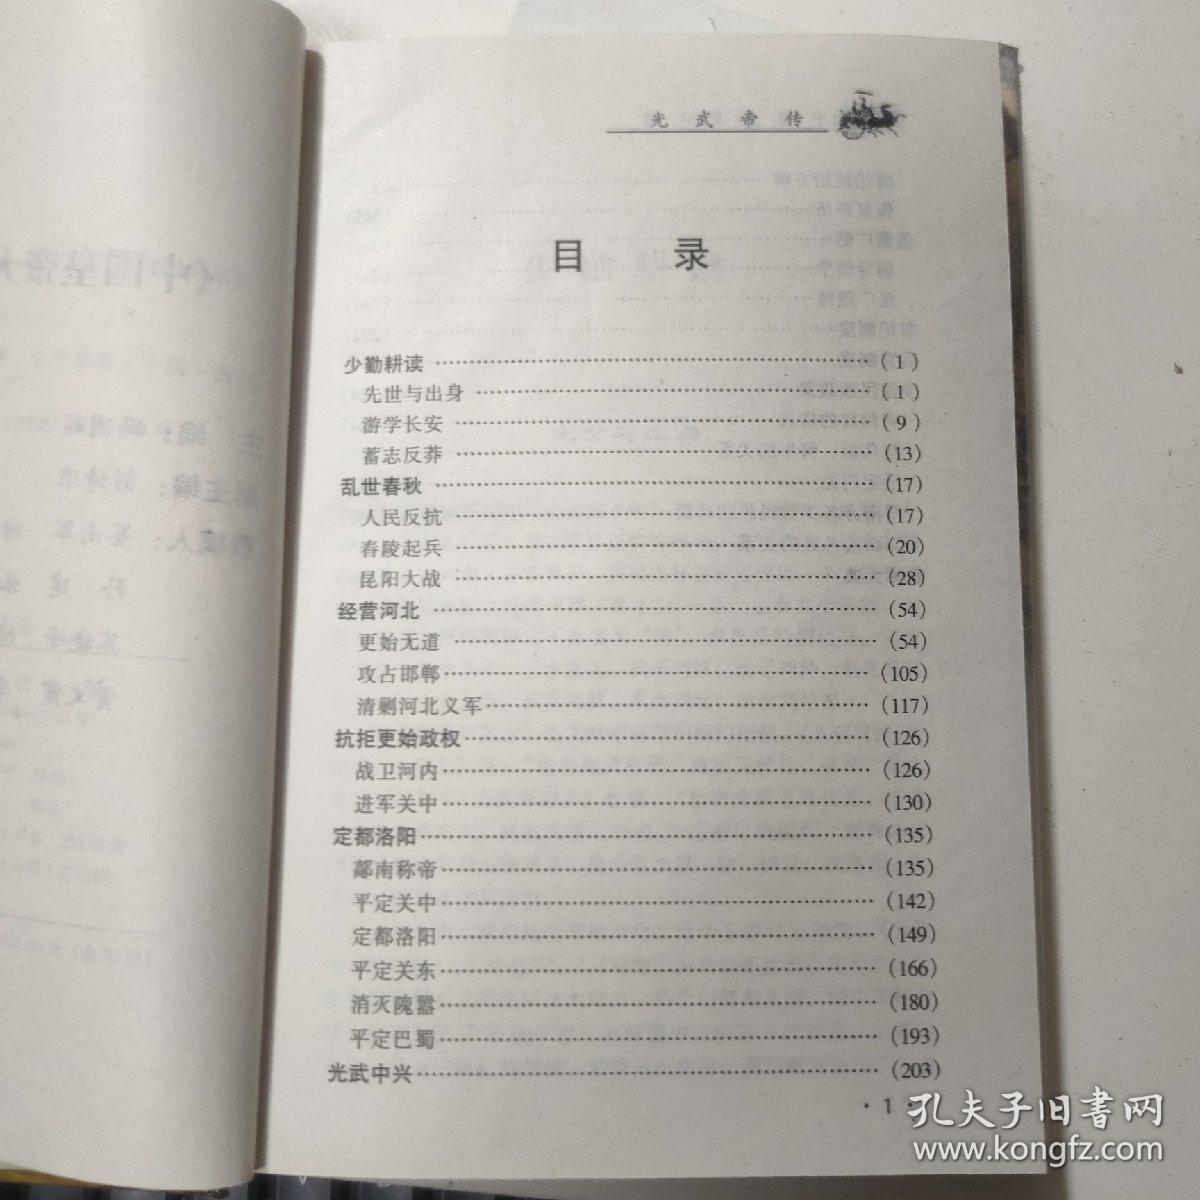 光武帝传
目 录
少勤耕读………(1)
先世与出身………(1)
游学长安………(9)
蓄志反莽………(13)
乱世春秋………(17)
人民反抗………(17)
春陵起兵………(20)
昆阳大战………(28)
经营河北………(54)
更始无道………(54)
攻占邯郸………(105)
清剿河北义军………(117)
抗拒更始政权………(126)
战卫河内………(126)
进军关中………(130)
定都洛阳………(135)
鄗南称帝………(135)
平定关中………(142)
定都洛阳………(149)
平定关东………(166)
消灭隗嚣………(180)
平定巴蜀………(193)
光武中兴………(203)
· 1 ·
孔夫子旧书网
www.kongfz.com